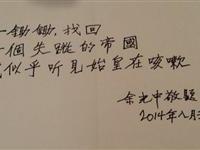 一鋤鋤,找回
個失蹤的帝國
似乎听見始皇在咳嗽
余光中敬題
2014年八月